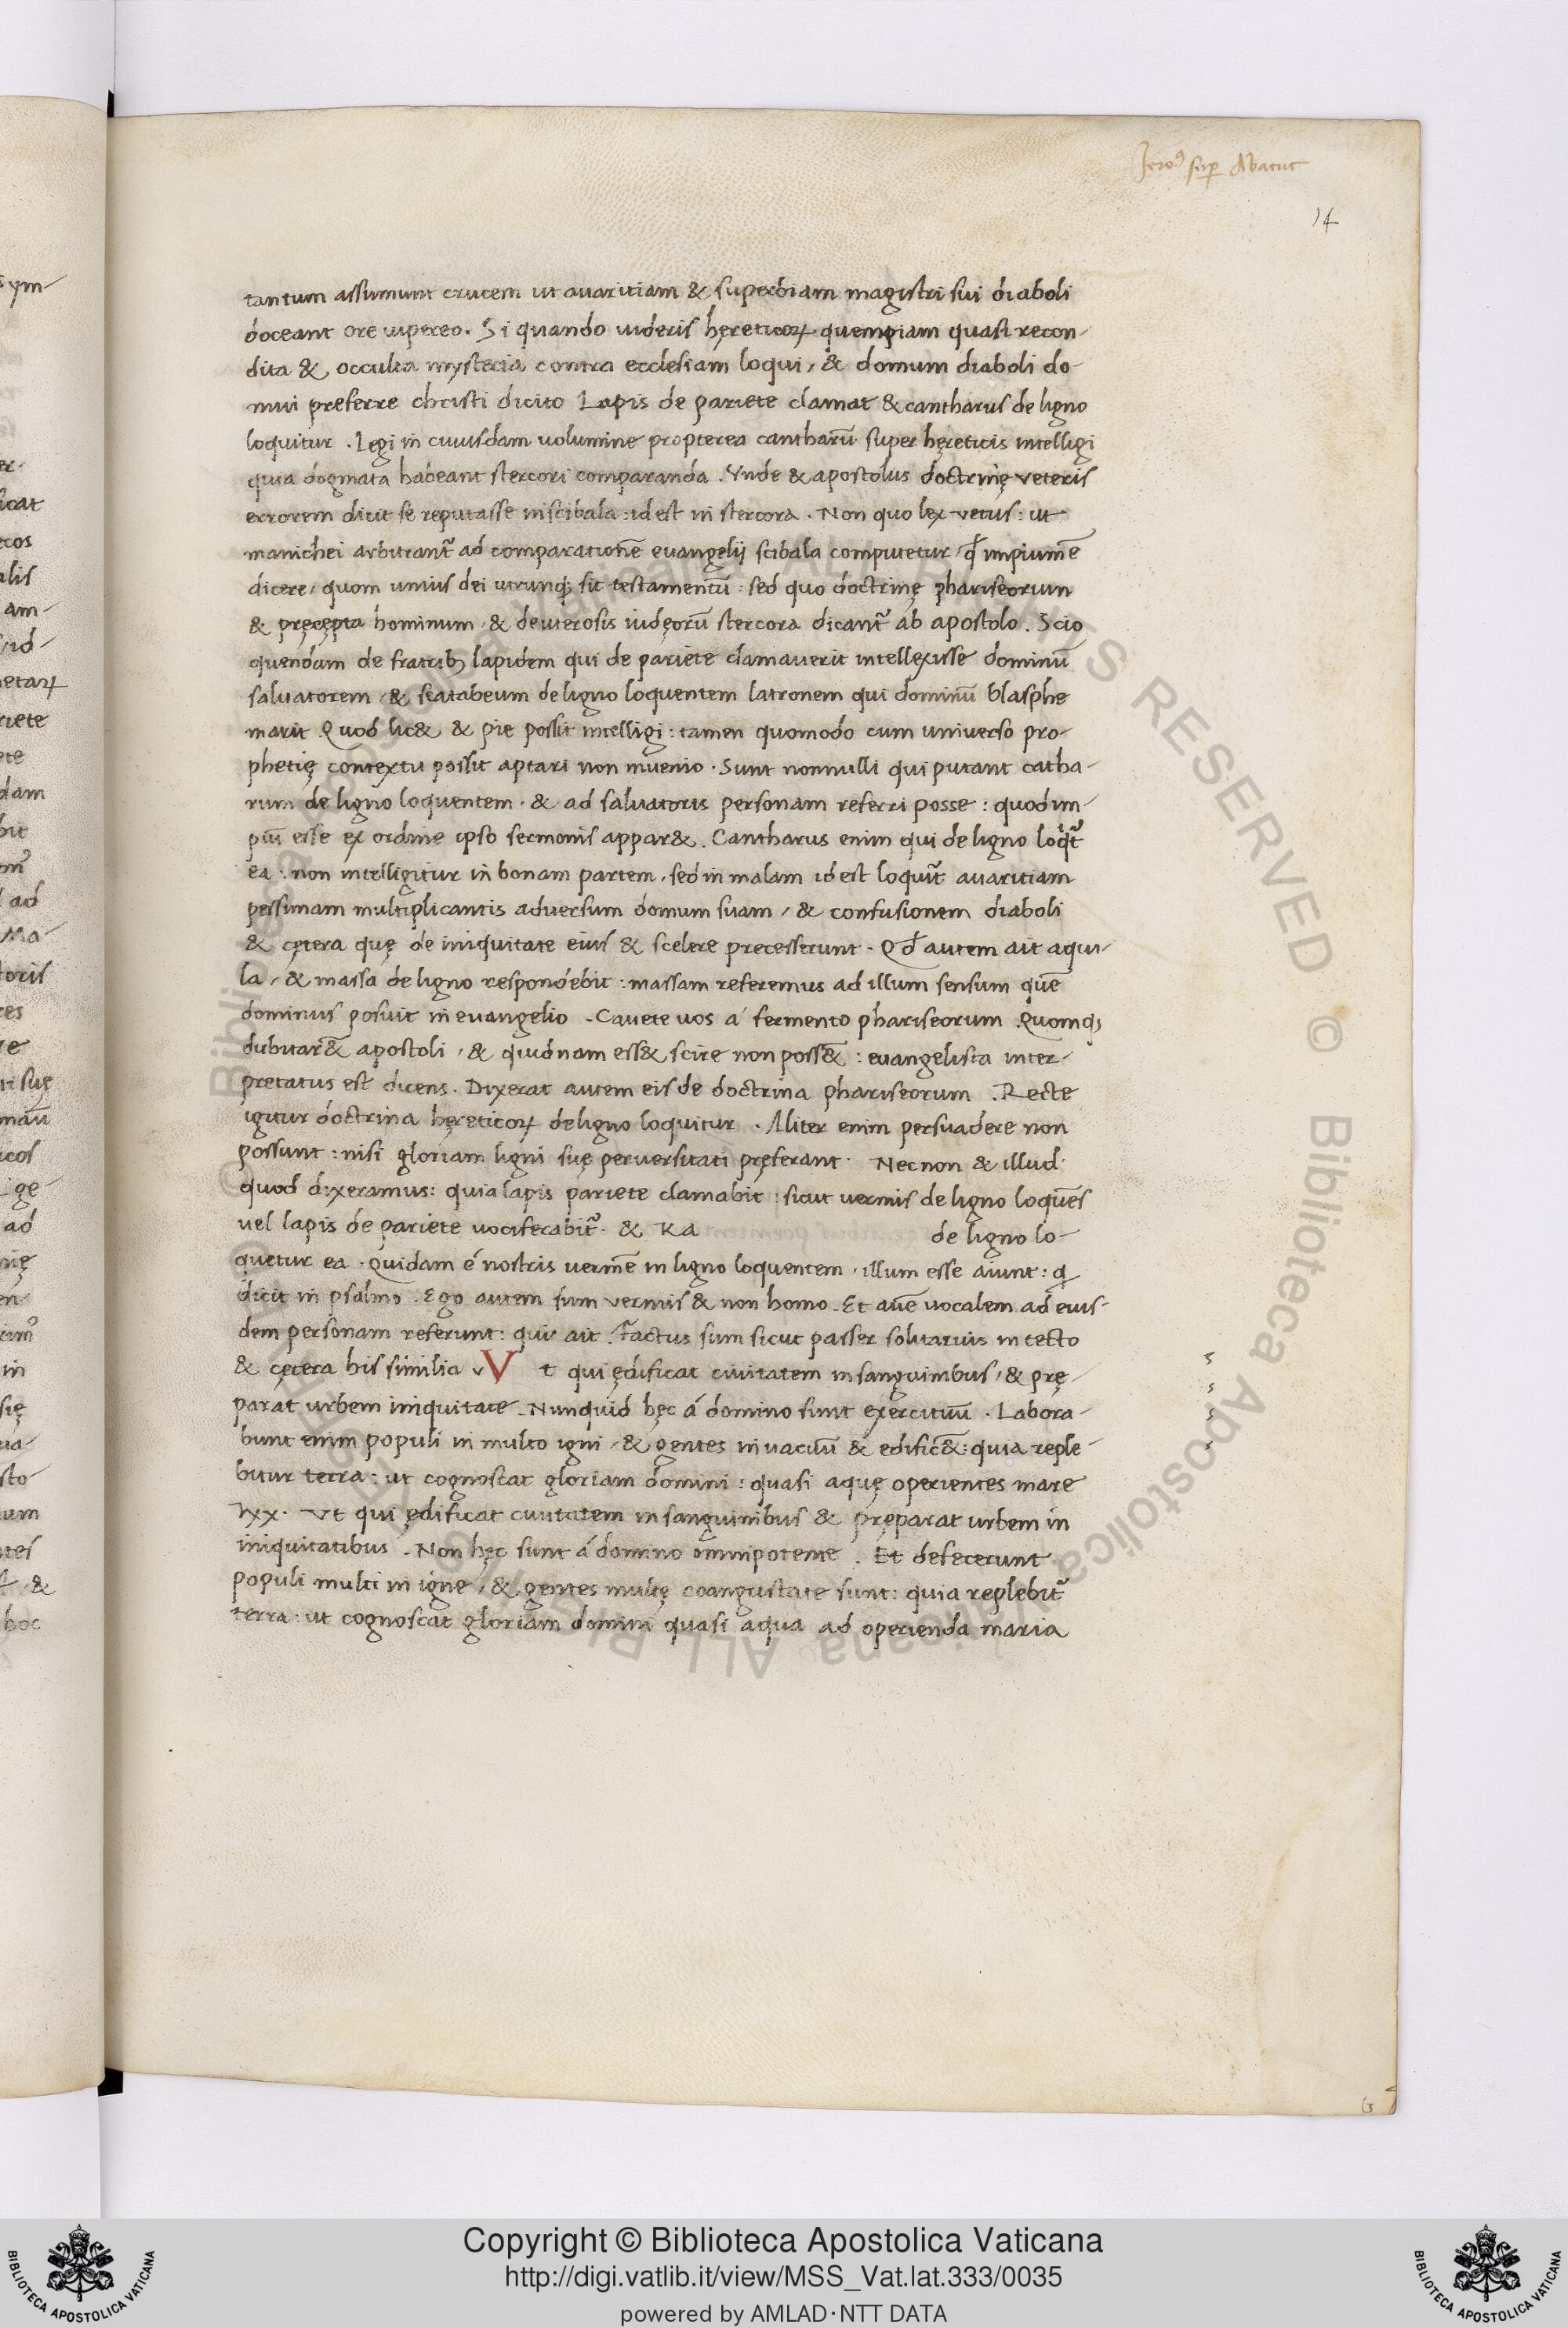 Jero⁹ sup̄ Abacuc
14
tantum assumunt crucem ut avaritiam & superbiam magistri sui diaboli
doceant ore vipereo. Si quando videris hęreticoꝝ quempiam quasi recon-
dita & occulta mysteria contra ecclesiam loqui, & domum diaboli do-
mui preferre christi dicito Lapis de pariete clamat & cantharus de ligno
loquitur. Legi in cuiusdam volumine propterea cantharū super hęreticis intelligi
quia dogmata habeant stercori comparanda. Vnde & apostolus doctrinę veteris
errorem dicit se reputasse inscibala: id est in stercora. Non quo lex vetus: ut
manichei arbitrant᷑ ad comparationē evangelij scibala computetur, qđ impium ē
dicere, quom unius dei utrunqꝫ sit testamentū: sed quo doctrinę phariseorum
& pręcępta hominum, & deuterosis iudęorū stercora dicant᷑ ab apostolo. Scio
quendam de fratribꝫ lapidem qui de pariete clamaverit intellexisse dominū
salvatorem, & scatabeum de ligno loquentem latronem qui dominū blasphe
mavit. Quod lic& & pie possit intelligi: tamen quomodo cum universo pro-
phetię contextu possit aptari non invenio. Sunt nonnulli qui putant catha-
rum de ligno loquentem. & ad salvatoris personam referri posse: quod im-
piū esse ex ordine ipso sermonis appar&. Cantharus enim qui de ligno loqit᷑
ea. non intelligitur in bonam partem, sed in malam id est loquit᷑ avaritiam
pessimam multiplicantis adversum domum suam, & confusionem diaboli
& cętera quę de iniquitate eius & scelere precesserunt. Qđ autem ait aqui-
la, & massa de ligno respondebit: massam referemus ad illum sensum quē
dominus posuit in evangelio. Cavete vos á fermento phariseorum. Quomqꝫ
dubitar&̄ apostoli, & quidnam ess& scire non poss&̄: evangelista inter-
pretatus est dicens. Dixerat autem eis de doctrina phariseorum. Recte
igitur doctrina hęreticoꝝ de ligno loquitur. Aliter enim persuadere non
possunt: nisi gloriam ligni suę perversitati pręferant. Nec non & illud
quod dixeramus: quia lapis pariete clamabit: sicut vermis de ligno loquēs
vel lapis de pariete vociferabit᷑. & Ka de ligno lo-
quetur ea. Quidam é nostris vermē in ligno loquentem, illum esse aiunt: qi
dicit in psalmo. Ego autem sum vermis & non homo. Et avē vocalem ad eius-
dem personam referunt: qui ait. Factus sum sicut passer solitarius in tecto
& cętera his similia v V t qui ędificat civitatem in sanguinibus, & prę-
parat urbem iniquitate. Nunquid hęc á domino sunt exercituū. Labora-
bunt enim populi in multo igni, & gentes in vacuū & edific&̄: quia reple-
bitur terra: ut cognoscat gloriam domini: quasi aquę operientes mare
lxx. Vt qui ędificat civitatem in sanguinibus & pręparat urbem in
iniquitatibus. Non hęc sunt á domino omnipotente. Et defecerunt
populi multi in igne, & gentes multę coangustate sunt: quia replebit᷑
terra: ut cognoscat gloriam domini quasi aqua ad operienda maria
Copyright © Biblioteca Apostolica Vaticana
http://digi.vatlib.it/view/MSS_Vat.lat.333/0035
powered by AMLAD·NTT DATA